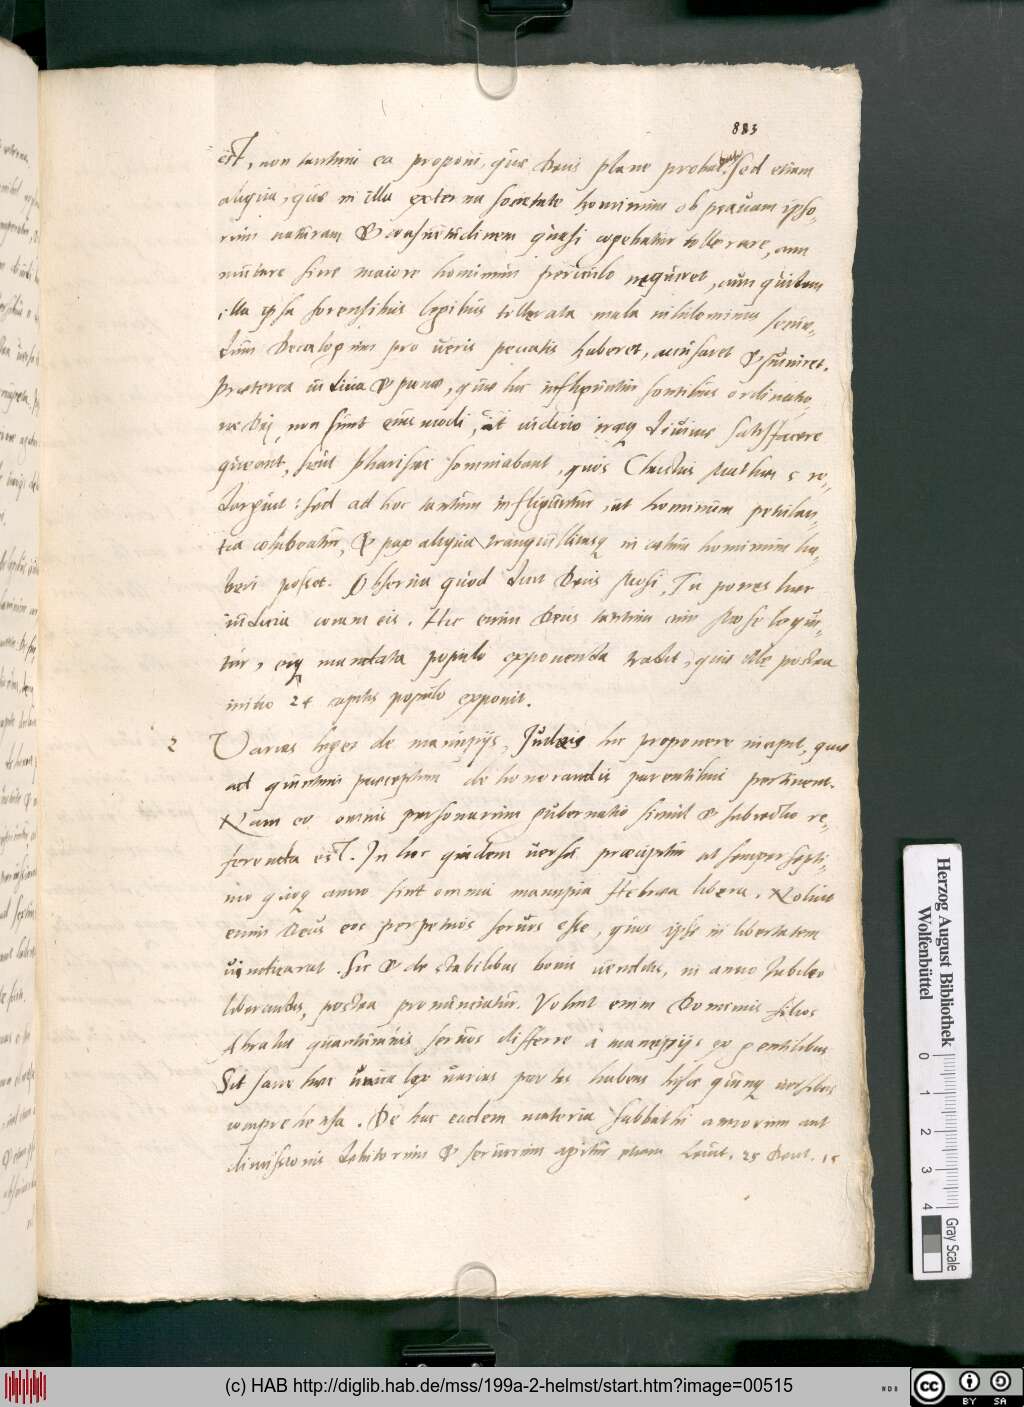 883
est, non tantum ea proponi, quae Deus plane probat. Sed etiam
aliqua, quae in illa externa societate hominum ob pravam ipso-
rum naturam & consuetudinem quasi cogebatur tollerare, cum
mutare sine maiore hominum periculo nequiret, cum quidem
illa ipsa forensibus legibus tollerata mala nihilominus
Decalogum pro veris peccatis haberet, accusaret & puniret.
Praeterea iudicia & penae, quae hic infliguntur sontibus
non sunt eiusmodi, ut iudicio iraeq divinae satisfacere
queant, sicut Pharisaei somniabant, quos Christus Matthaei 5 re-
darguit: sed ad hoc tantum infliguntur, ut hominum petulan-
tia cohibeatur, & pax aliqua tranquillitasq in coetu hominum ha-
beri posset. Observa quod dicit Deus Mosi, Tu pones haec
iudicia coram eis. Hic enim Deus tantum cum Mose loqui-
tur, eiq mandata populo exponenda tradit, quae ille postea
initio 24 capitis populo exponit.
2 Varias leges de mancipijs, Judaeis hic proponere incipit, quae
ad quintum praeceptum de honorandis parentibus pertinent.
Nam eo omnis personarum gubernatio simul & subiectio re-
ferenda est. In hoc quidem versu praecipitur ut semper septi-
mo quoq anno sint omnia mancipia Hebraea libera. Noluit
enim Deus eos perpetuos servos esse, quos ipse in libertatem
vindicarat. Sic & de stabilibus bonis venditis, in anno Jubileo
liberandis, postea pronunciatur. Voluit enim Dominus filios
Abrahae quantumvis servos differre à mancipijs ex gentilibus
Sit sane haec unica lex varias partes habens hisce quinq versibus
comprehensa. De hac eadem materia Sabbathi annorum aut
dimissionis debitorum & servorum agitur etiam Levit. 25 Deut. 15
Herzog August Bibliothek
Wolfenbüttel
0 1 2 3 4
Gray Scale
(c) HAB http://diglib.hab.de/mss/199a-2-helmst/start.htm?image=00515
cc BY SA